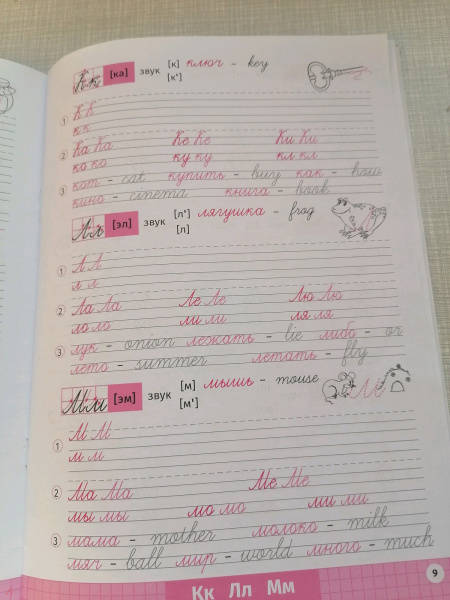 Кк [ка] звук [к] ключ - key
[к']
① К К
к к
② Ка Ка Ке Ке Ки Ки
ко ко ку ку кл кл
③ кот - cat купить - buy как - how
кино - cinema книга - book
Лл [эл] звук [л'] лягушка - frog
[л]
① Л Л
л л
② Ла Ла Ле Ле Лю Лю
ло ло ли ли ля ля
③ лук - onion лежать - lie либо - or
лето - summer летать - fly
Мм [эм] звук [м] мышь - mouse
[м']
① М М
м м
② Ма Ма Ме Ме
мы мы мо мо ми ми
③ мама - mother молоко - milk
мяч - ball мир - world много - much
9
Кк Лл Мм